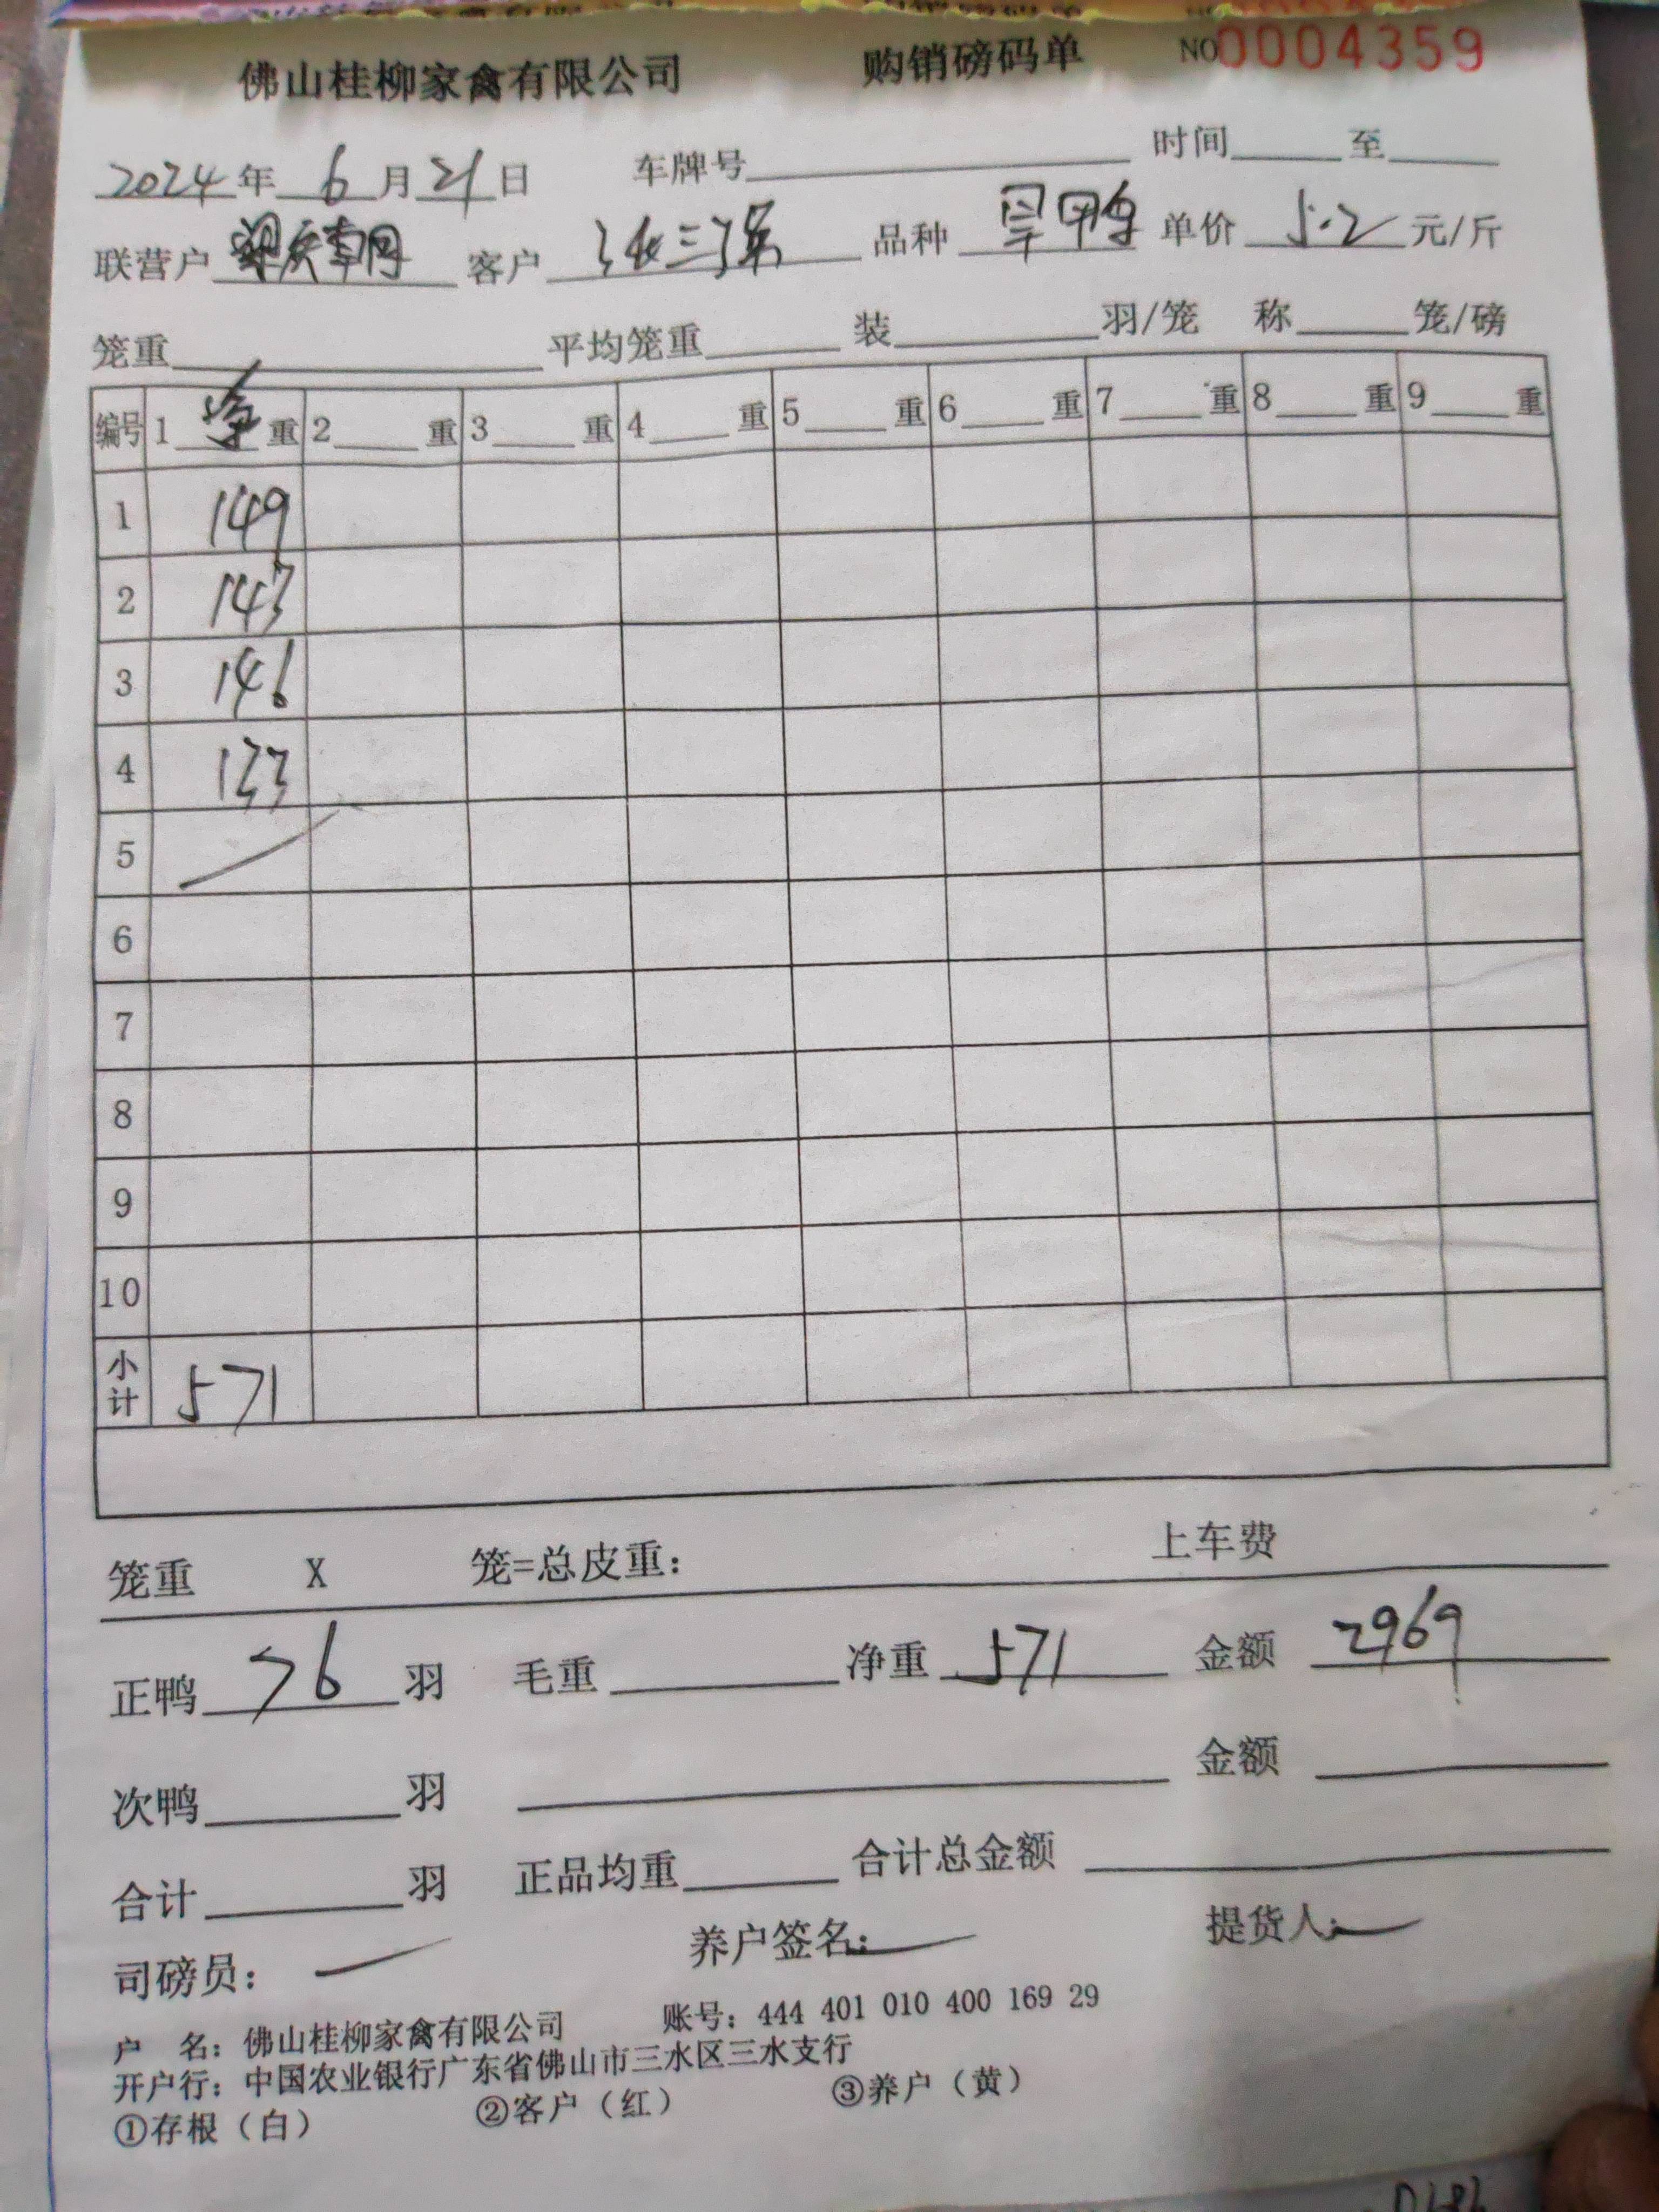 佛山桂柳家禽有限公司 购销磅码单 NO0004359
2024年 6月21日 车牌号 时间 至
联营户 梁庆朝 客户 张三强 品种 旱鸭 单价 5.2 元/斤
笼重 平均笼重 装 羽/笼 称 笼/磅
编号 1 净 重 2 重 3 重 4 重 5 重 6 重 7 重 8 重 9 重
1 149
2 143
3 146
4 133
5
6
7
8
9
10
小计 571
笼重 X 笼=总皮重: 上车费
正鸭 76 羽 毛重 净重 571 金额 2969
次鸭 羽 金额
合计 羽 正品均重 合计总金额
司磅员: 养户签名: 提货人:
户 名: 佛山桂柳家禽有限公司 账号: 444 401 010 400 169 29
开户行: 中国农业银行广东省佛山市三水区三水支行
①存根（白） ②客户（红） ③养户（黄）